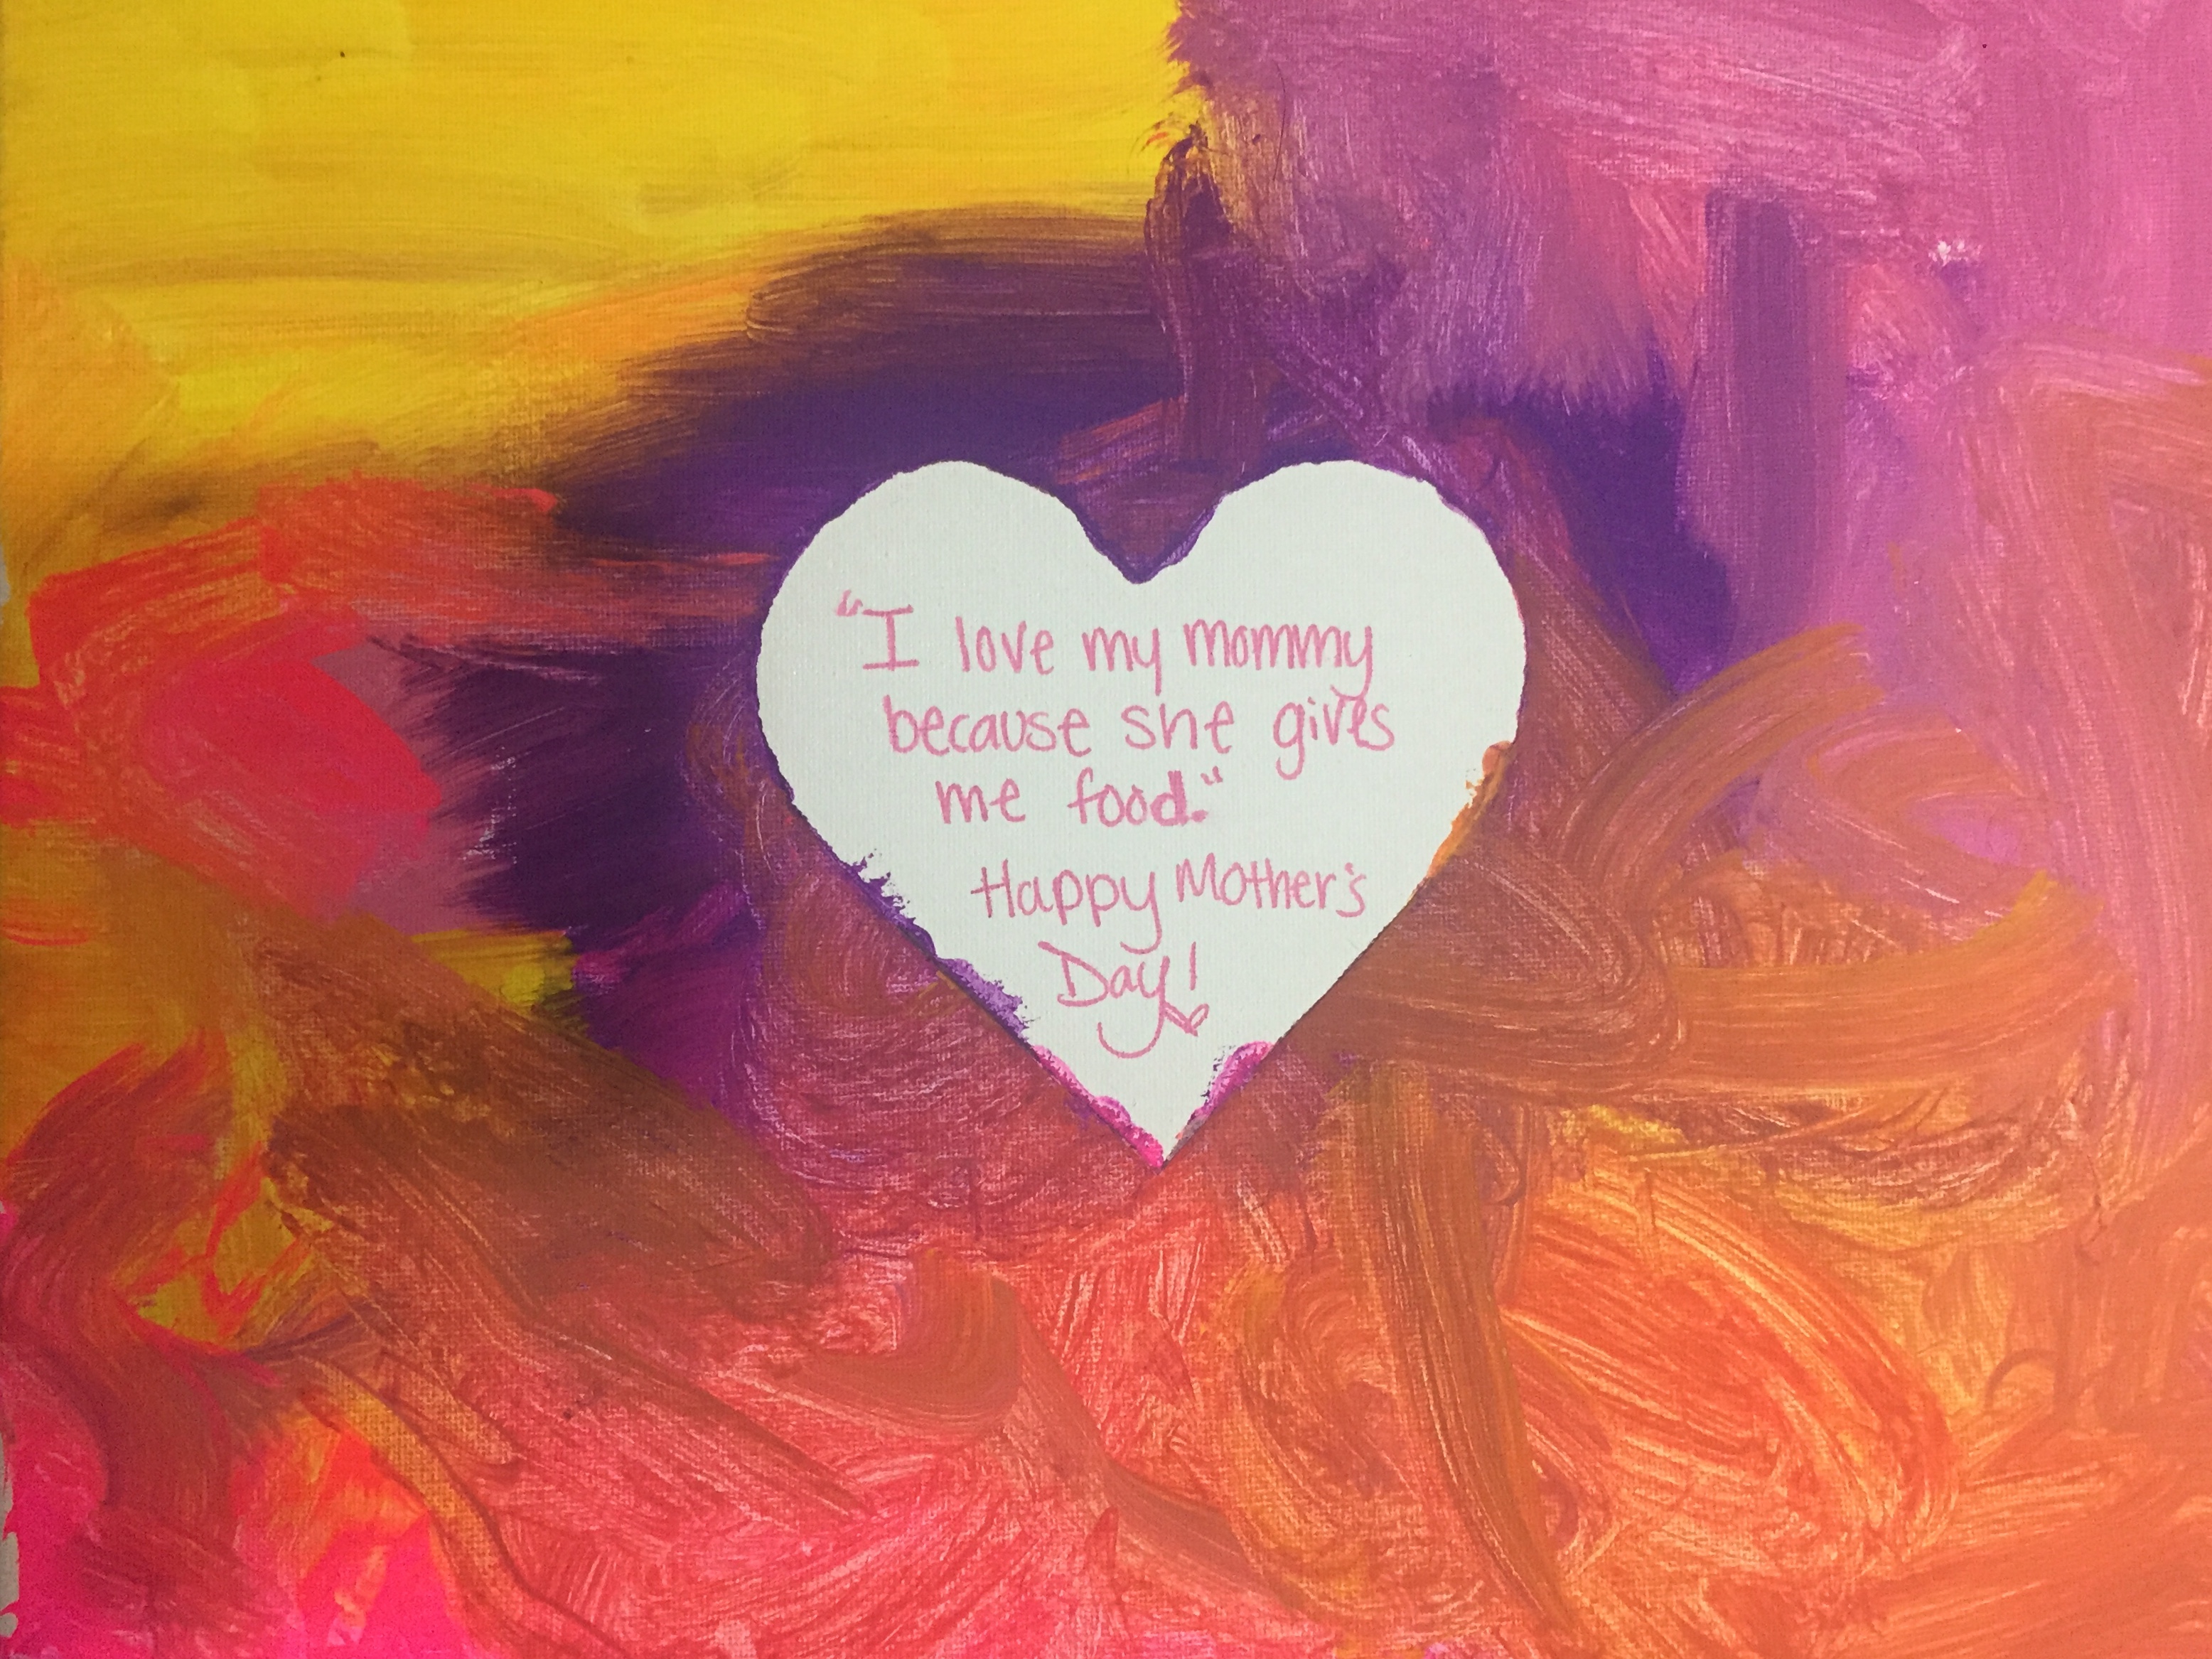 "I love my mommy
because she gives
me food."
Happy Mother's
Day!